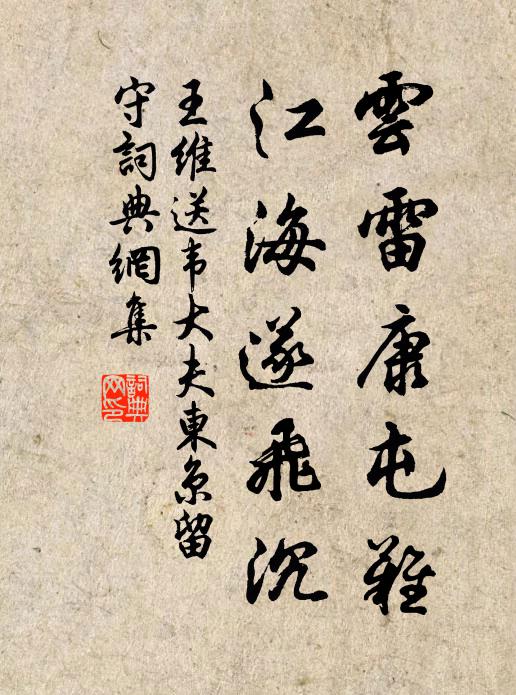 雲雷康屯難
江海遂飛沉
王維送韦大夫東京留
守詞典網集
詞典
网印